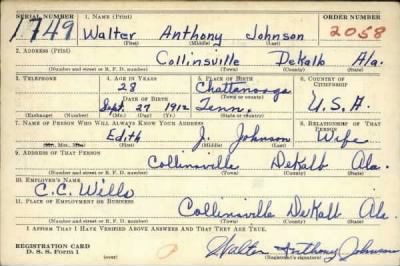 SERIAL NUMBER 1. NAME (Print) ORDER NUMBER
1749 Walter Anthony Johnson 2058
(First) (Middle) (Last)
2. ADDRESS (Print)
Collinsville DeKalb Ala.
(Number and street or R. F. D. number) (Town) (County) (State)
3. TELEPHONE 4. AGE IN YEARS 5. PLACE OF BIRTH 6. COUNTRY OF CITIZENSHIP
28 Chattanooga
DATE OF BIRTH (Town or county)
Sept. 27 1912 Tenn. U.S.A.
(Exchange) (Number) (Mo.) (Day) (Yr.) (State or country)
7. NAME OF PERSON WHO WILL ALWAYS KNOW YOUR ADDRESS 8. RELATIONSHIP OF THAT PERSON
Edith J. Johnson Wife
(Mr., Mrs., Miss) (First) (Middle) (Last)
9. ADDRESS OF THAT PERSON
Collinsville DeKalb Ala.
(Number and street or R. F. D. number) (Town) (County) (State)
10. EMPLOYER'S NAME
C.C. Wills
11. PLACE OF EMPLOYMENT OR BUSINESS
Collinsville DeKalb Ala.
(Number and street or R. F. D. number) (Town) (County) (State)
I AFFIRM THAT I HAVE VERIFIED ABOVE ANSWERS AND THAT THEY ARE TRUE.
REGISTRATION CARD
D. S. S. Form 1 Walter Anthony Johnson
(Registrant's signature)